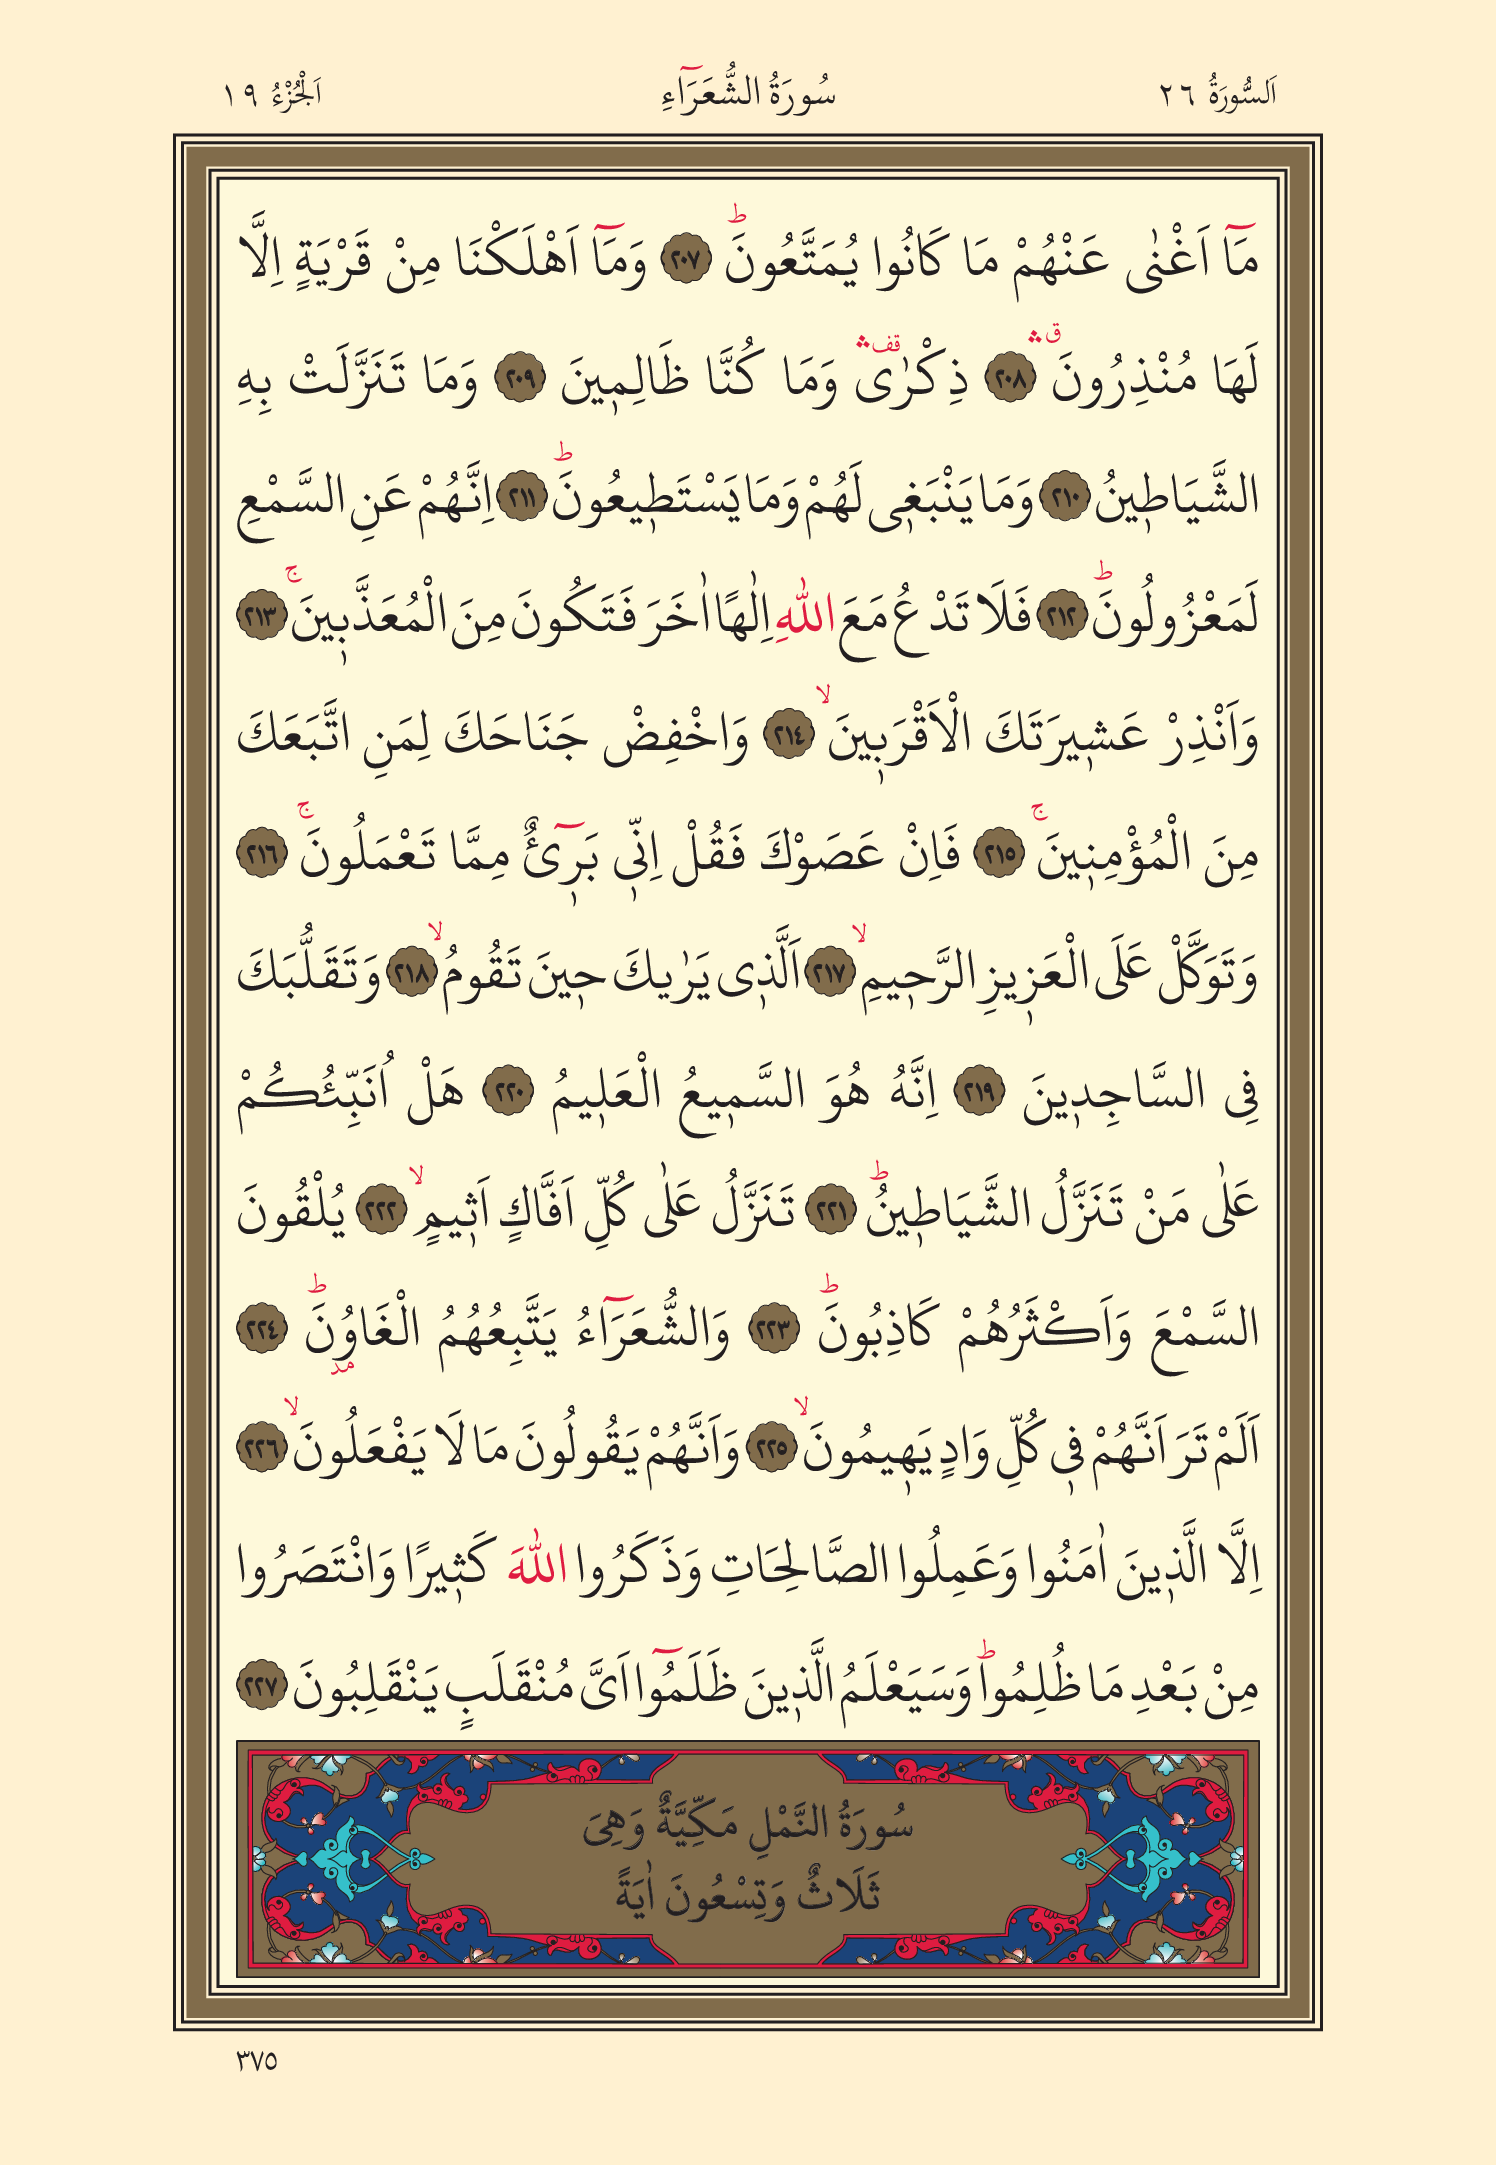 اَلسُّورَةُ ٢٦
سُورَةُ الشُّعَرَٓاءِ
اَلْجُزْءُ ١٩
مَٓا اَغْنٰى عَنْهُمْ مَا كَانُوا يُمَتَّعُونَۜ ﴿٢٠٧﴾ وَمَٓا اَهْلَكْنَا مِنْ قَرْيَةٍ اِلَّا
لَهَا مُنْذِرُونَۗۛ ﴿٢٠٨﴾ ذِكْرٰىۛ قف وَمَا كُنَّا ظَالِم۪ينَ ﴿٢٠٩﴾ وَمَا تَنَزَّلَتْ بِهِ
الشَّيَاط۪ينُ ﴿٢١٠﴾ وَمَا يَنْبَغ۪ى لَهُمْ وَمَا يَسْتَط۪يعُونَۜ ﴿٢١١﴾ اِنَّهُمْ عَنِ السَّمْعِ
لَمَعْزُولُونَۜ ﴿٢١٢﴾ فَلَا تَدْعُ مَعَ اللّٰهِ اِلٰهًا اٰخَرَ فَتَكُونَ مِنَ الْمُعَذَّب۪ينَۚ ﴿٢١٣﴾
وَاَنْذِرْ عَش۪يرَتَكَ الْاَقْرَب۪ينَۙ ﴿٢١٤﴾ وَاخْفِضْ جَنَاحَكَ لِمَنِ اتَّبَعَكَ
مِنَ الْمُؤْمِن۪ينَۚ ﴿٢١٥﴾ فَاِنْ عَصَوْكَ فَقُلْ اِنّ۪ى بَر۪ٓىءٌ مِمَّا تَعْمَلُونَۚ ﴿٢١٦﴾
وَتَوَكَّلْ عَلَى الْعَز۪يزِ الرَّح۪يمِۙ ﴿٢١٧﴾ اَلَّذ۪ى يَرٰيكَ ح۪ينَ تَقُومُۙ ﴿٢١٨﴾ وَتَقَلُّبَكَ
فِى السَّاجِد۪ينَ ﴿٢١٩﴾ اِنَّهُ هُوَ السَّم۪يعُ الْعَل۪يمُ ﴿٢٢٠﴾ هَلْ اُنَبِّئُكُمْ
عَلٰى مَنْ تَنَزَّلُ الشَّيَاط۪ينُۜ ﴿٢٢١﴾ تَنَزَّلُ عَلٰى كُلِّ اَفَّاكٍ اَث۪يمٍۙ ﴿٢٢٢﴾ يُلْقُونَ
السَّمْعَ وَاَكْثَرُهُمْ كَاذِبُونَۜ ﴿٢٢٣﴾ وَالشُّعَرَٓاءُ يَتَّبِعُهُمُ الْغَاوُ۫نَۜ ﴿٢٢٤﴾
مد
اَلَمْ تَرَ اَنَّهُمْ ف۪ى كُلِّ وَادٍ يَه۪يمُونَۙ ﴿٢٢٥﴾ وَاَنَّهُمْ يَقُولُونَ مَا لَا يَفْعَلُونَۙ ﴿٢٢٦﴾
اِلَّا الَّذ۪ينَ اٰمَنُوا وَعَمِلُوا الصَّالِحَاتِ وَذَكَرُوا اللّٰهَ كَث۪يرًا وَانْتَصَرُوا
مِنْ بَعْدِ مَا ظُلِمُواۜ وَسَيَعْلَمُ الَّذ۪ينَ ظَلَمُٓوا اَىَّ مُنْقَلَبٍ يَنْقَلِبُونَ ﴿٢٢٧﴾
سُورَةُ النَّمْلِ مَكِّيَّةٌ وَهِىَ
ثَلَاثٌ وَتِسْعُونَ اٰيَةً
٣٧٥